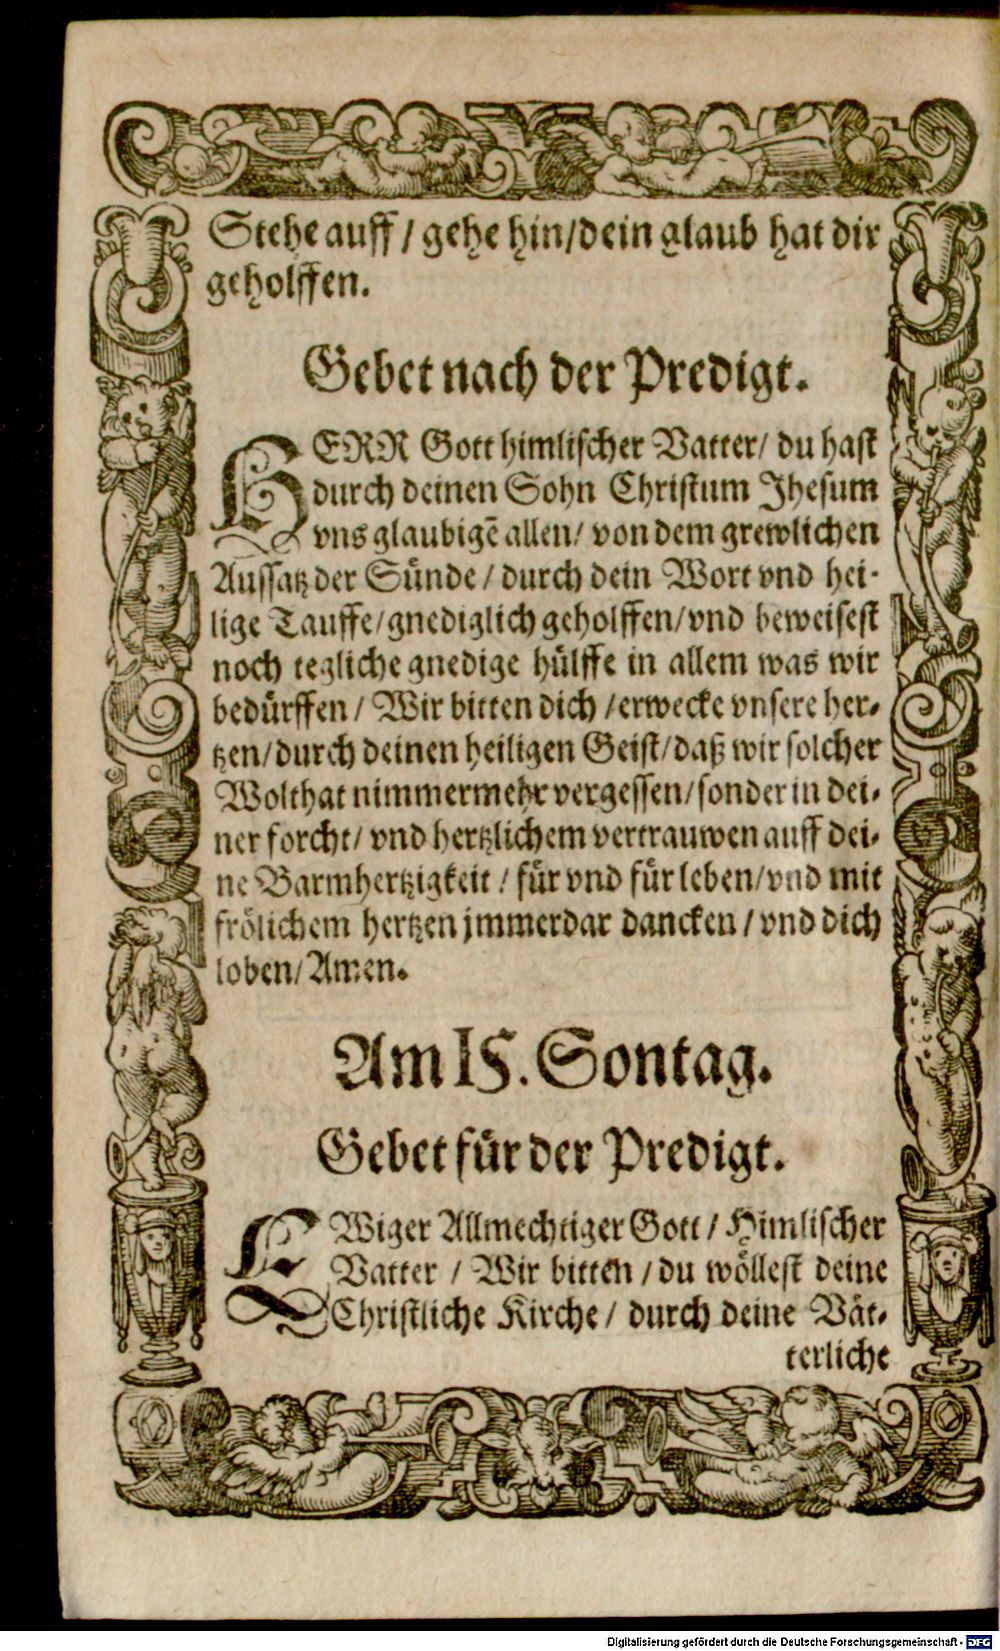 Stehe auff / gehe hin / dein glaub hat dir
geholffen.
Gebet nach der Predigt.
HERR Gott himlischer Vatter / du hast
durch deinen Sohn Christum Jhesum
vns glaubigē allen / von dem grewlichen
Aussatz der Sünde / durch dein Wort vnd hei-
lige Tauffe / gnediglich geholffen / vnd beweisest
noch tegliche gnedige hülffe in allem was wir
bedürffen / Wir bitten dich / erwecke vnsere her-
tzen / durch deinen heiligen Geist / daß wir solcher
Wolthat nimmermehr vergessen / sonder in dei-
ner forcht / vnd hertzlichem vertrauwen auff dei-
ne Barmhertzigkeit / für vnd für leben / vnd mit
frölichem hertzen jmmerdar dancken / vnd dich
loben / Amen.
Am 15. Sontag.
Gebet für der Predigt.
EWiger Allmechtiger Gott / Himlischer
Vatter / Wir bitten / du wöllest deine
Christliche Kirche / durch deine Vät-
terliche
Digitalisierung gefördert durch die Deutsche Forschungsgemeinschaft - DFG